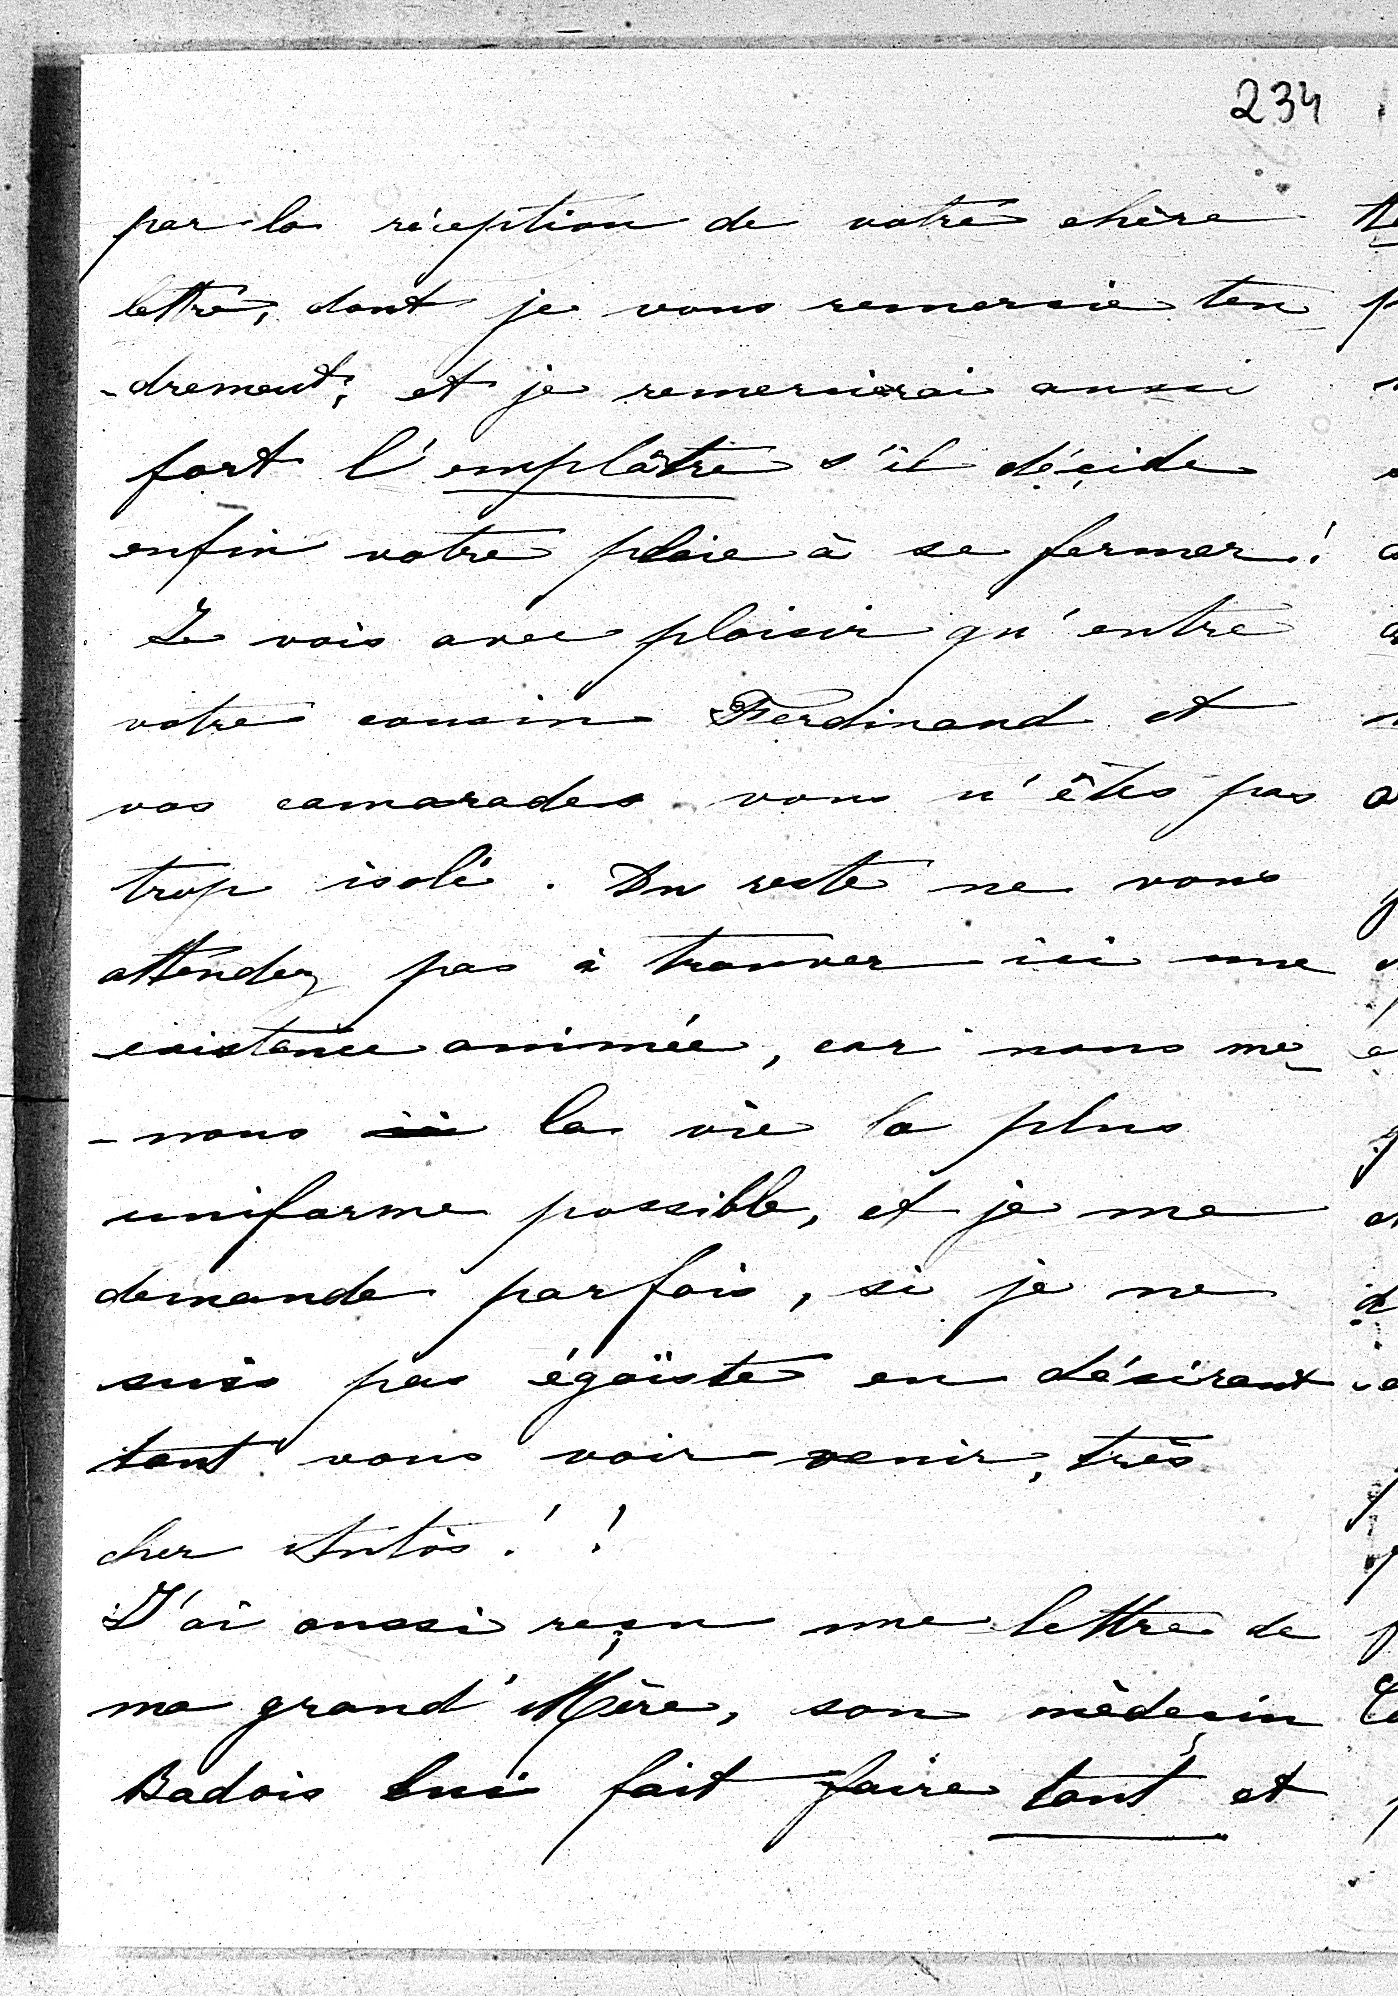 234
par la réception de votre chère
lettre, dont je vous remercie ten-
-drement; et je remercierai aussi
fort l'emplâtre s'il décide
enfin votre plaie à se fermer!
Je vois avec plaisir qu'entre
votre cousin Ferdinand et
vos camarades vous n'êtes pas
trop isolé. Du reste ne vous
attendez pas à trouver ici une
existence animée, car nous me-
-nons la vie la plus
uniforme possible, et je me
demande parfois, si je ne
suis pas égoïste en désirant
tant vous voir venir, très
cher Antos!!
J'ai aussi reçu une lettre de
ma grand'Mère, son médecin
Badois lui fait faire tant et